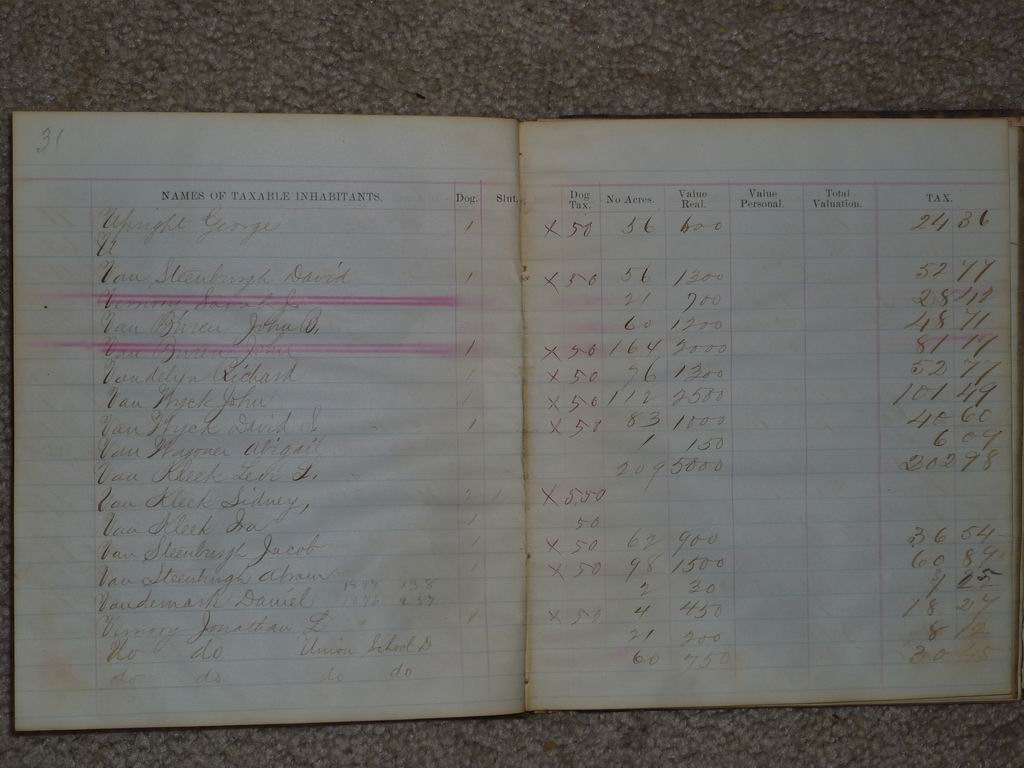 31
NAMES OF TAXABLE INHABITANTS. Dog. Slut. Dog Tax. No Acres. Value Real. Value Personal. Total Valuation. TAX.
Upright George 1 X 50 56 600 24 36
U
Van Steenburgh David 1 X 50 56 1300 52 77
Vimory 21 700 28 42
Van Buren John B. 60 1200 48 71
Van Buren John 1 X 50 164 2000 81 19
Vandelyn Richard 1 X 50 76 1300 52 77
Van Wyck John 1 X 50 112 2500 101 49
Van Wyck David S. 1 X 50 83 1000 40 60
Van Wagoner Abigail 1 150 6 09
Van Kleek Levi L. 209 5000 202 98
Van Kleek Sidney, 2 1 X 5,50
Van Kleek Ira 1 50
Van Steenburgh Jacob 1 X 50 62 900 36 54
Van Steenburgh Abram 1 X 50 98 1500 60 89
Vandemark Daniel 2 30 1 25
Vimory Jonathan L 1 X 50 4 450 18 27
Do do Union School D 21 200 8 12
do do do do 60 750 30 45